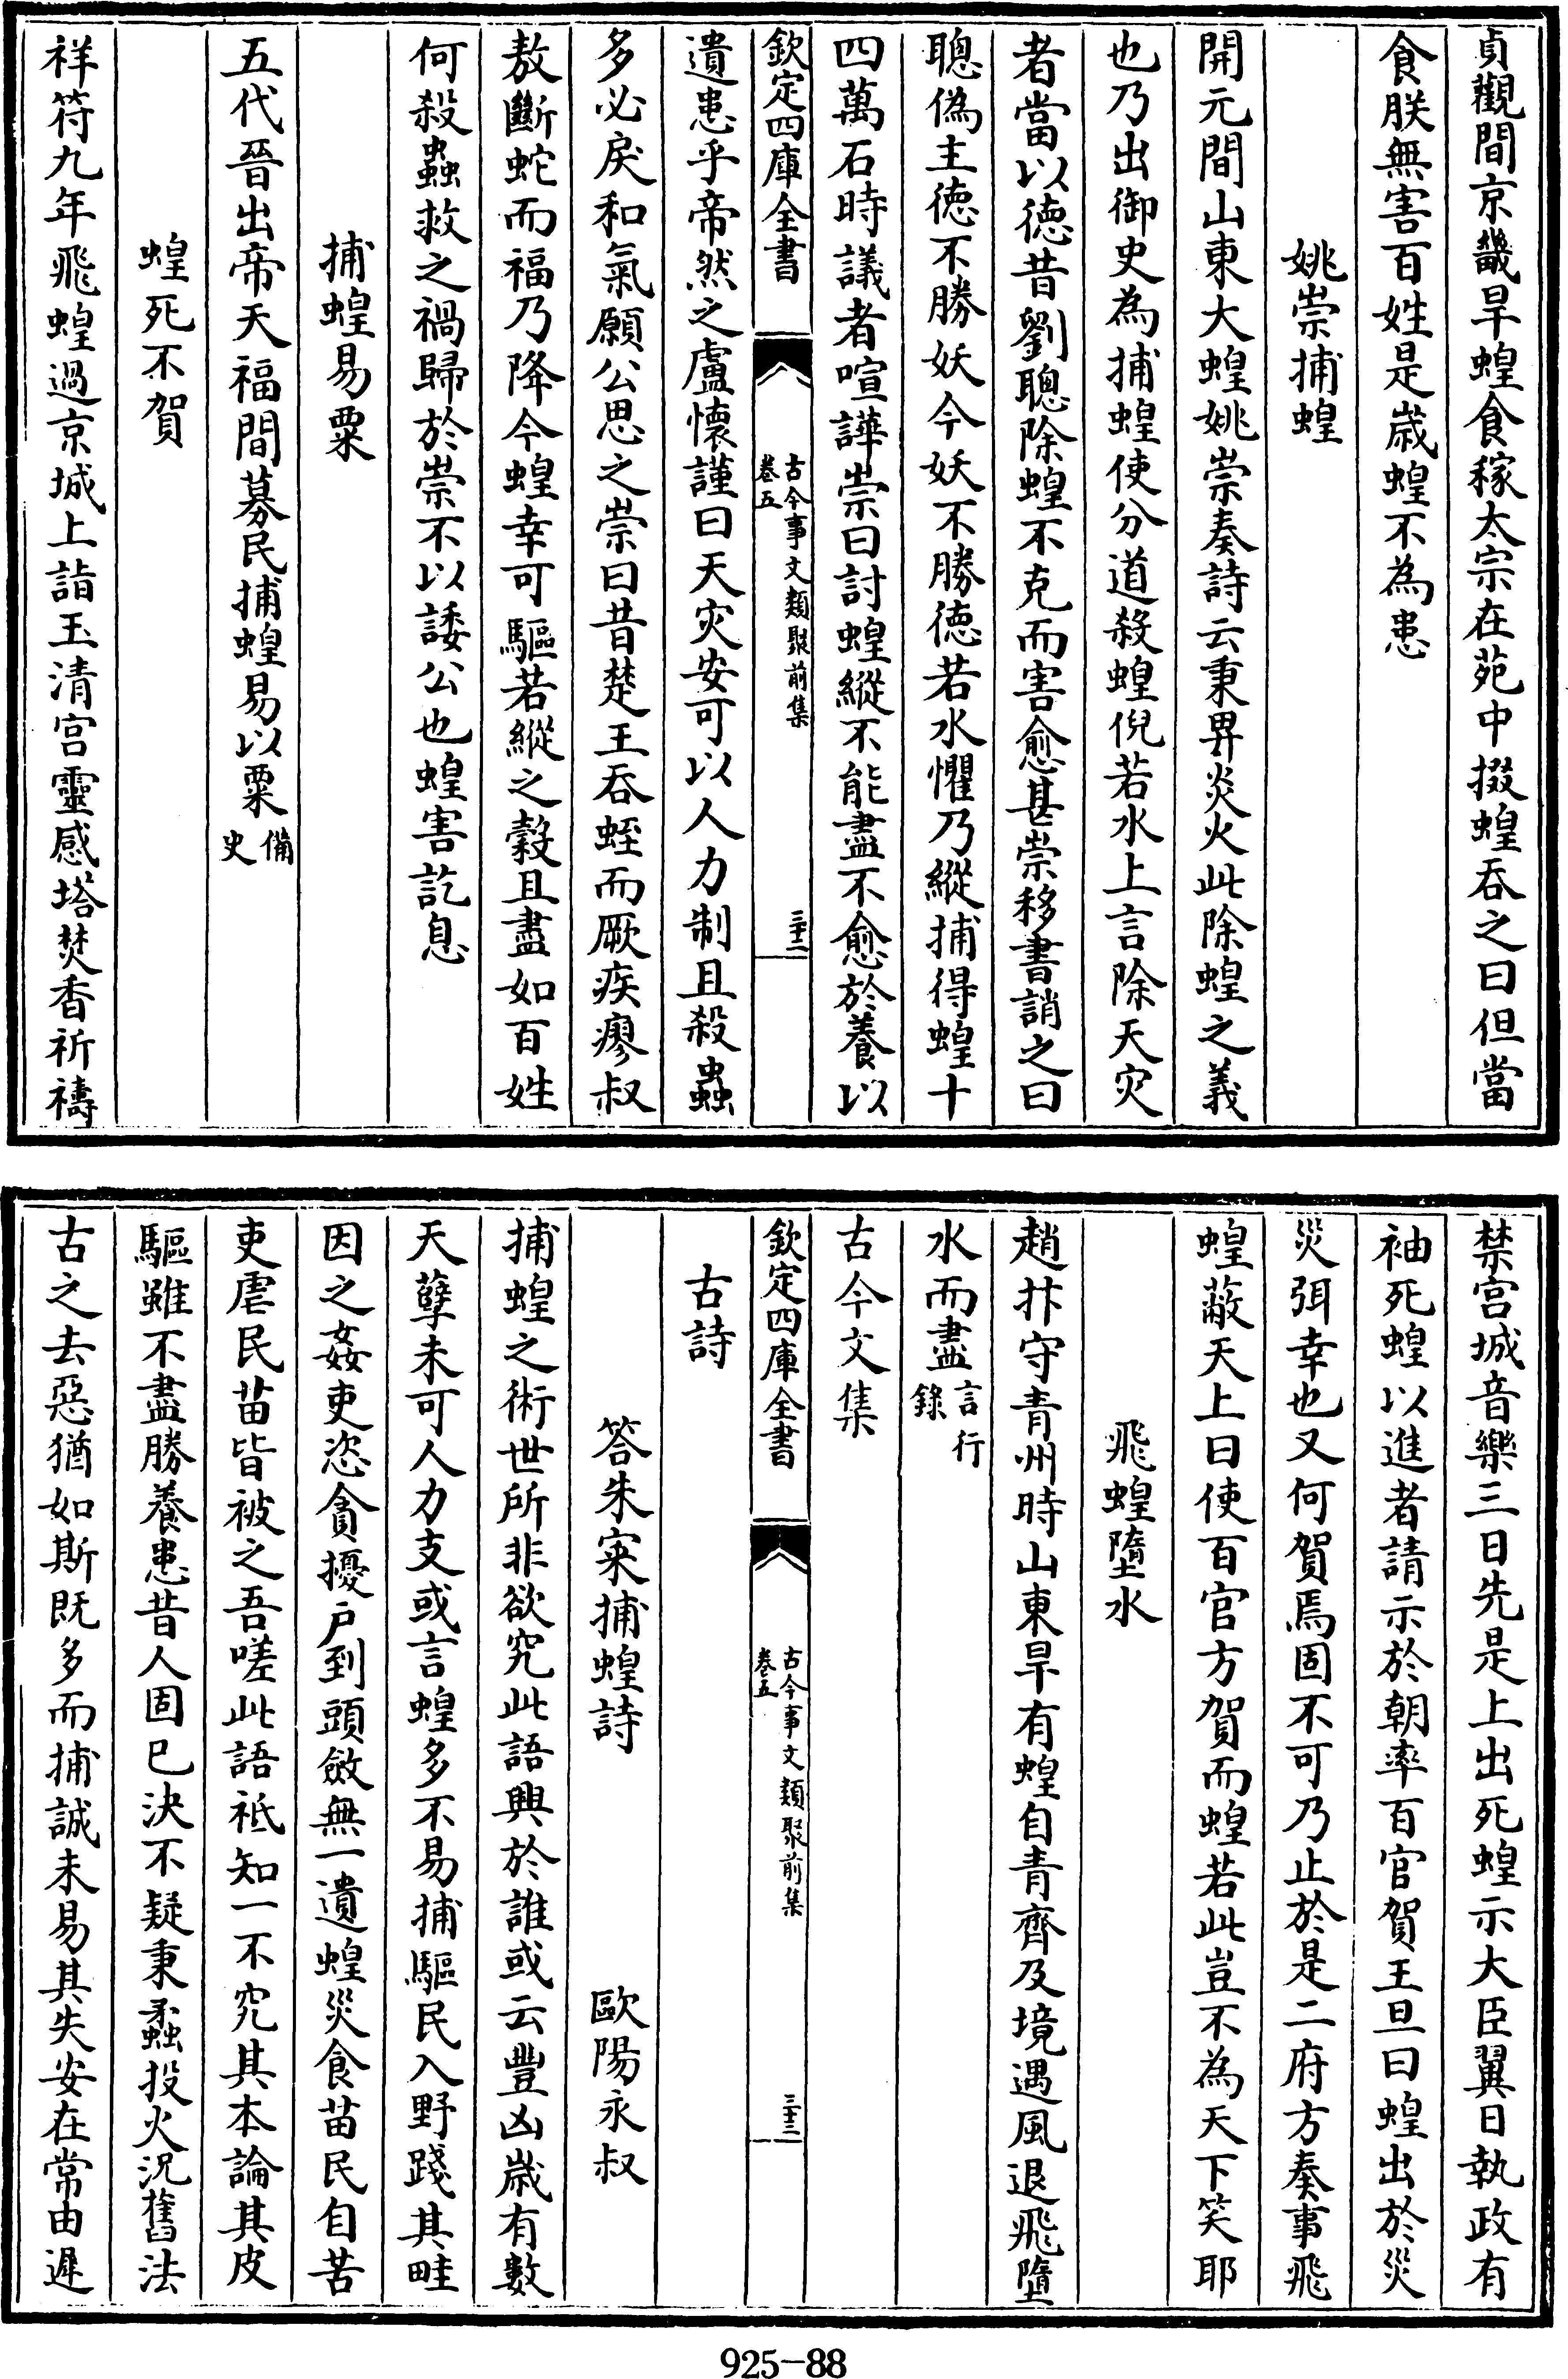 貞觀間京畿旱蝗食稼太宗在苑中掇蝗吞之曰但當
食朕無害百姓是歳蝗不為患
姚崇捕蝗
開元間山東大蝗姚崇奏詩云秉畀炎火此除蝗之義
也乃出御史為捕蝗使分道殺蝗倪若水上言除天灾
者當以徳昔劉聰除蝗不克而害愈甚崇移書誚之曰
聰偽主徳不勝妖今妖不勝徳若水懼乃縱捕得蝗十
四萬石時議者喧譁崇曰討蝗縱不能盡不愈於養以
欽定四庫全書
古今事文類聚前集
卷五
三十二
遺患乎帝然之盧懐謹曰天灾安可以人力制且殺蟲
多必戾和氣願公思之崇曰昔楚王吞蛭而厥疾瘳叔
敖斷蛇而福乃降今蝗幸可驅若縱之穀且盡如百姓
何殺蟲救之禍歸於崇不以諉公也蝗害訖息
捕蝗易粟
五代晉出帝天福間募民捕蝗易以粟備史
蝗死不賀
祥符九年飛蝗過京城上詣玉清宫靈感塔焚香祈禱
禁宫城音樂三日先是上出死蝗示大臣翼日執政有
袖死蝗以進者請示於朝率百官賀王旦曰蝗出於災
災弭幸也又何賀焉固不可乃止於是二府方奏事飛
蝗蔽天上曰使百官方賀而蝗若此豈不為天下笑耶
飛蝗墮水
趙抃守青州時山東旱有蝗自青齊及境遇風退飛墮
水而盡言行錄
古今文集
欽定四庫全書
古今事文類聚前集
卷五
三十三
古詩
答朱寀捕蝗詩 歐陽永叔
捕蝗之術世所非欲究此語興於誰或云豐凶歳有數
天孽未可人力支或言蝗多不易捕驅民入野踐其畦
因之姦吏恣貪擾戶到頭斂無一遺蝗災食苗民自苦
吏虐民苗皆被之吾嗟此語祗知一不究其本論其皮
驅雖不盡勝養患昔人固已決不疑秉蟊投火況舊法
古之去惡猶如斯既多而捕誠未易其失安在常由遲
925-88